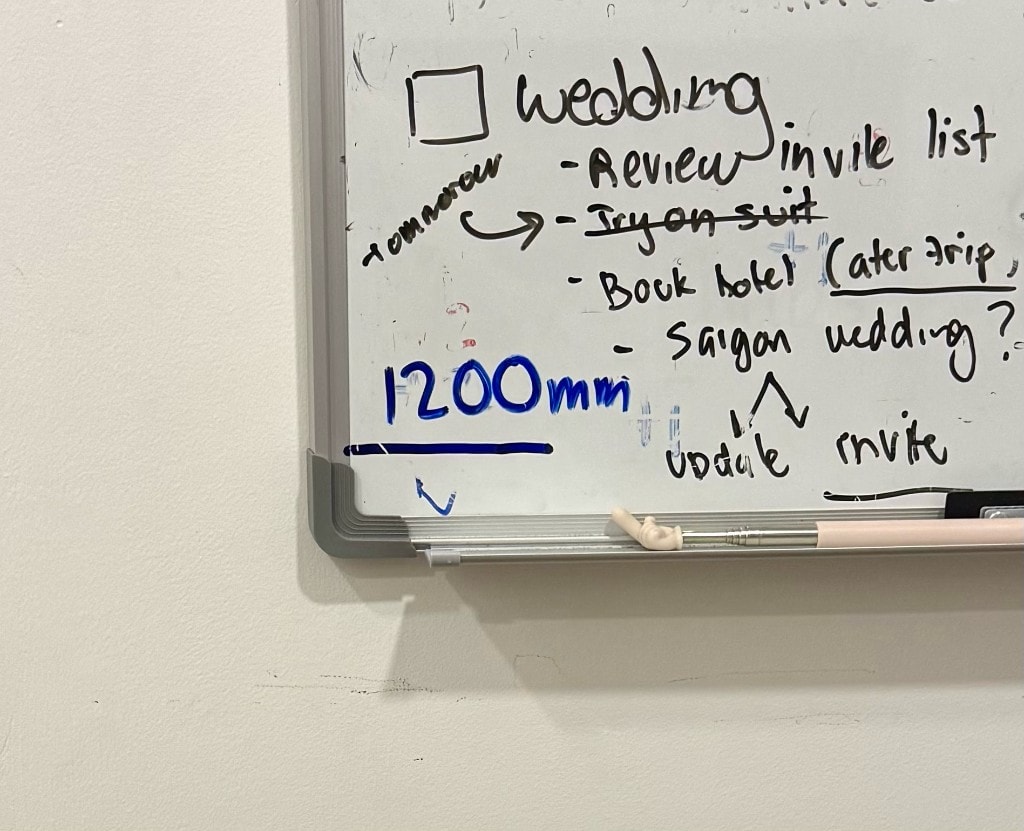 wedding
- Review invite list
tommorow
- Try on suit
- Book hotel (after trip,
- Saigon wedding?
1200mm
update invite